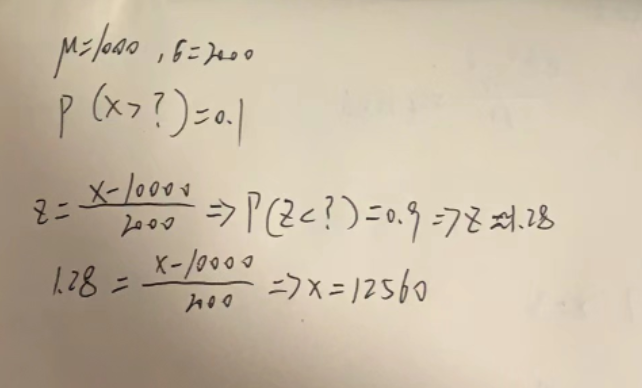 μ=1000 , σ=2000
P (X>?)=0.1
z = \frac{X-10000}{2000} => P(Z<?)=0.9 => Z≈1.28
1.28 = \frac{X-10000}{200} => X=12560